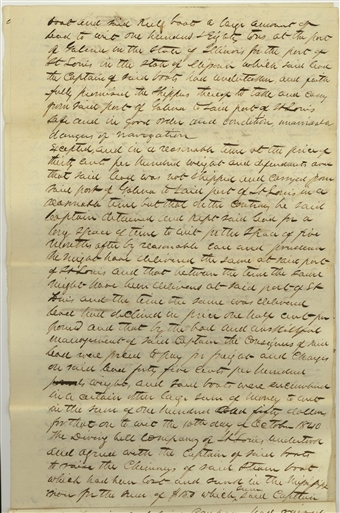 boat and said Keel boat a large amount of
lead to wit one hundred & Eighty tons at the port
of Galena in the State of Illinois for the port of
St Louis in the State of Missouri which said lead
the Captain of said boats had undertaken and faith
fully promised the shippers thereof to take and carry
from said port of Galena to said port of St Louis
safe and in good order and condition unavoidable
dangers of navigation
Excepted, and in a reasonable time at the price of
thirty cents per hundred weight and defendants aver
that said lead was not shipped and carried from
said port of Galena to said port of St Louis in a
reasonable time but that on the contrary he said
captain detained and kept said lead for a
long space of time to wit for the space of five
months after by reasonable care and prudence
he might have delivered the same at said port
of St Louis and that between the time the same
might have been delivered at said port of St
Louis and the time the same was delivered
lead had declined in price one half cent per
pound and that by the bad and unskillful
management of said Captain the Consignees of said
lead were forced to pay for freight and charges
on said lead forty five cents per hundred
weight, and said boat were encumbered
in a certain other large sum of money to wit
in the sum of one hundred and fifty dollars
for that on to wit the 10th day of October 1840
the Diving bell Company of St Louis undertook
and agreed with the Captain of said boats
to raise the Chimneys of said Steam boat
which had been lost and sunk in the Mississippi
river for the sum of $150 which sum said Captain